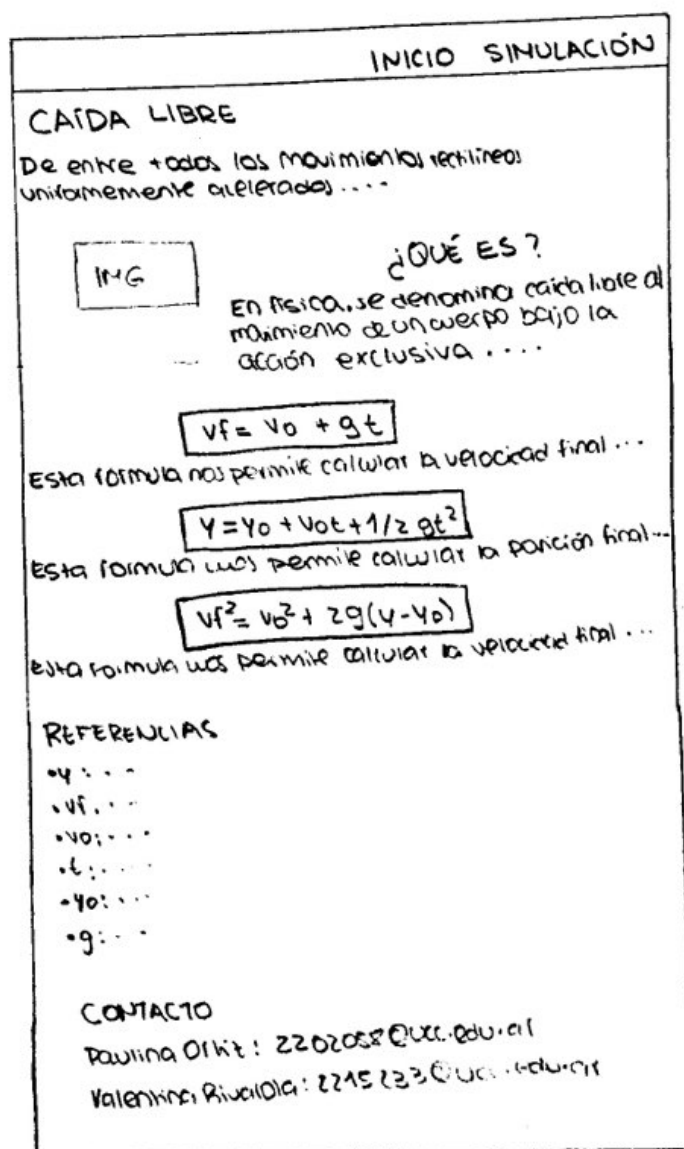 INICIO SIMULACIÓN
CAÍDA LIBRE
De entre todos los movimientos rectilíneos
uniformemente acelerados....
IMG
¿QUÉ ES?
En física, se denomina caída libre al
movimiento de un cuerpo bajo la
acción exclusiva ....
vf = vo + gt
Esta formula nos permite calcular la velocidad final ...
y = yo + vot + 1/2 gt²
Esta formula nos permite calcular la posición final...
vf² = vo² + 2g(y-yo)
Esta formula nos permite calcular la velocidad final ...
REFERENCIAS
•y: ...
•vf: ...
•vo: ...
•t: ....
•yo: ...
•g: ...
CONTACTO
Paulina : 2202058@ucc.edu.ar
Valentina : @ucc.edu.ar